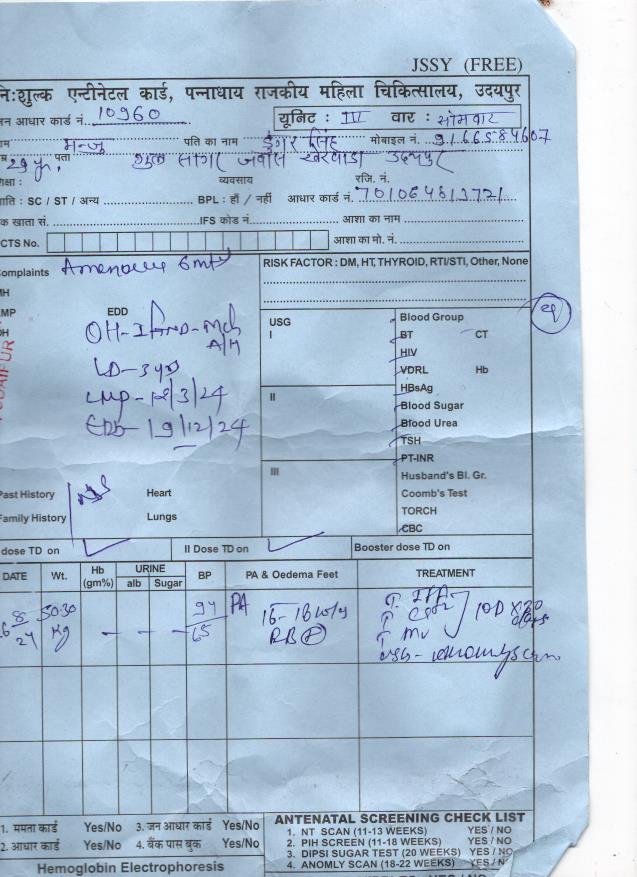 JSSY (FREE)
नि:शुल्क एन्टीनेटल कार्ड, पन्नाधाय राजकीय महिला चिकित्सालय, उदयपुर
जन आधार कार्ड नं. 10960 यूनिट : III वार : सोमवार
नाम मन्जु पति का नाम डुंगर सिंह मोबाइल नं. 9166584607
29 yr. पता सागर खेरवाडा उदयपुर
शिक्षा : व्यवसाय रजि. नं.
जाति : SC / ST / अन्य BPL : हाँ / नहीं आधार कार्ड नं. 701064813721
बैंक खाता सं. IFS कोड नं. आशा का नाम
PCTS No. आशा का मो. नं.
Complaints RISK FACTOR : DM, HT, THYROID, RTI/STI, Other, None
MH
LMP EDD
OH
OH-I
A/H
LD-3 yrs
LMP-12/3/24
EDD-19/12/24
UDAIPUR
USG
I
II
III
Blood Group
BT CT
HIV
VDRL Hb
HBsAg
Blood Sugar
Blood Urea
TSH
PT-INR
Husband's Bl. Gr.
Coomb's Test
TORCH
CBC
Past History Heart
Family History Lungs
I dose TD on II Dose TD on Booster dose TD on
DATE Wt. Hb (gm%) URINE alb Sugar BP PA & Oedema Feet TREATMENT
8/24 50.30 Kg - - - 94/65 PA 16-18 wks
T. IFA
10D x 30 days
USG-
1. ममता कार्ड Yes/No 3. जन आधार कार्ड Yes/No
2. आधार कार्ड Yes/No 4. बैंक पास बुक Yes/No
Hemoglobin Electrophoresis
ANTENATAL SCREENING CHECK LIST
1. NT SCAN (11-13 WEEKS) YES / NO
2. PIH SCREEN (11-18 WEEKS) YES / NO
3. DIPSI SUGAR TEST (20 WEEKS) YES / NO
4. ANOMLY SCAN (18-22 WEEKS) YES / N